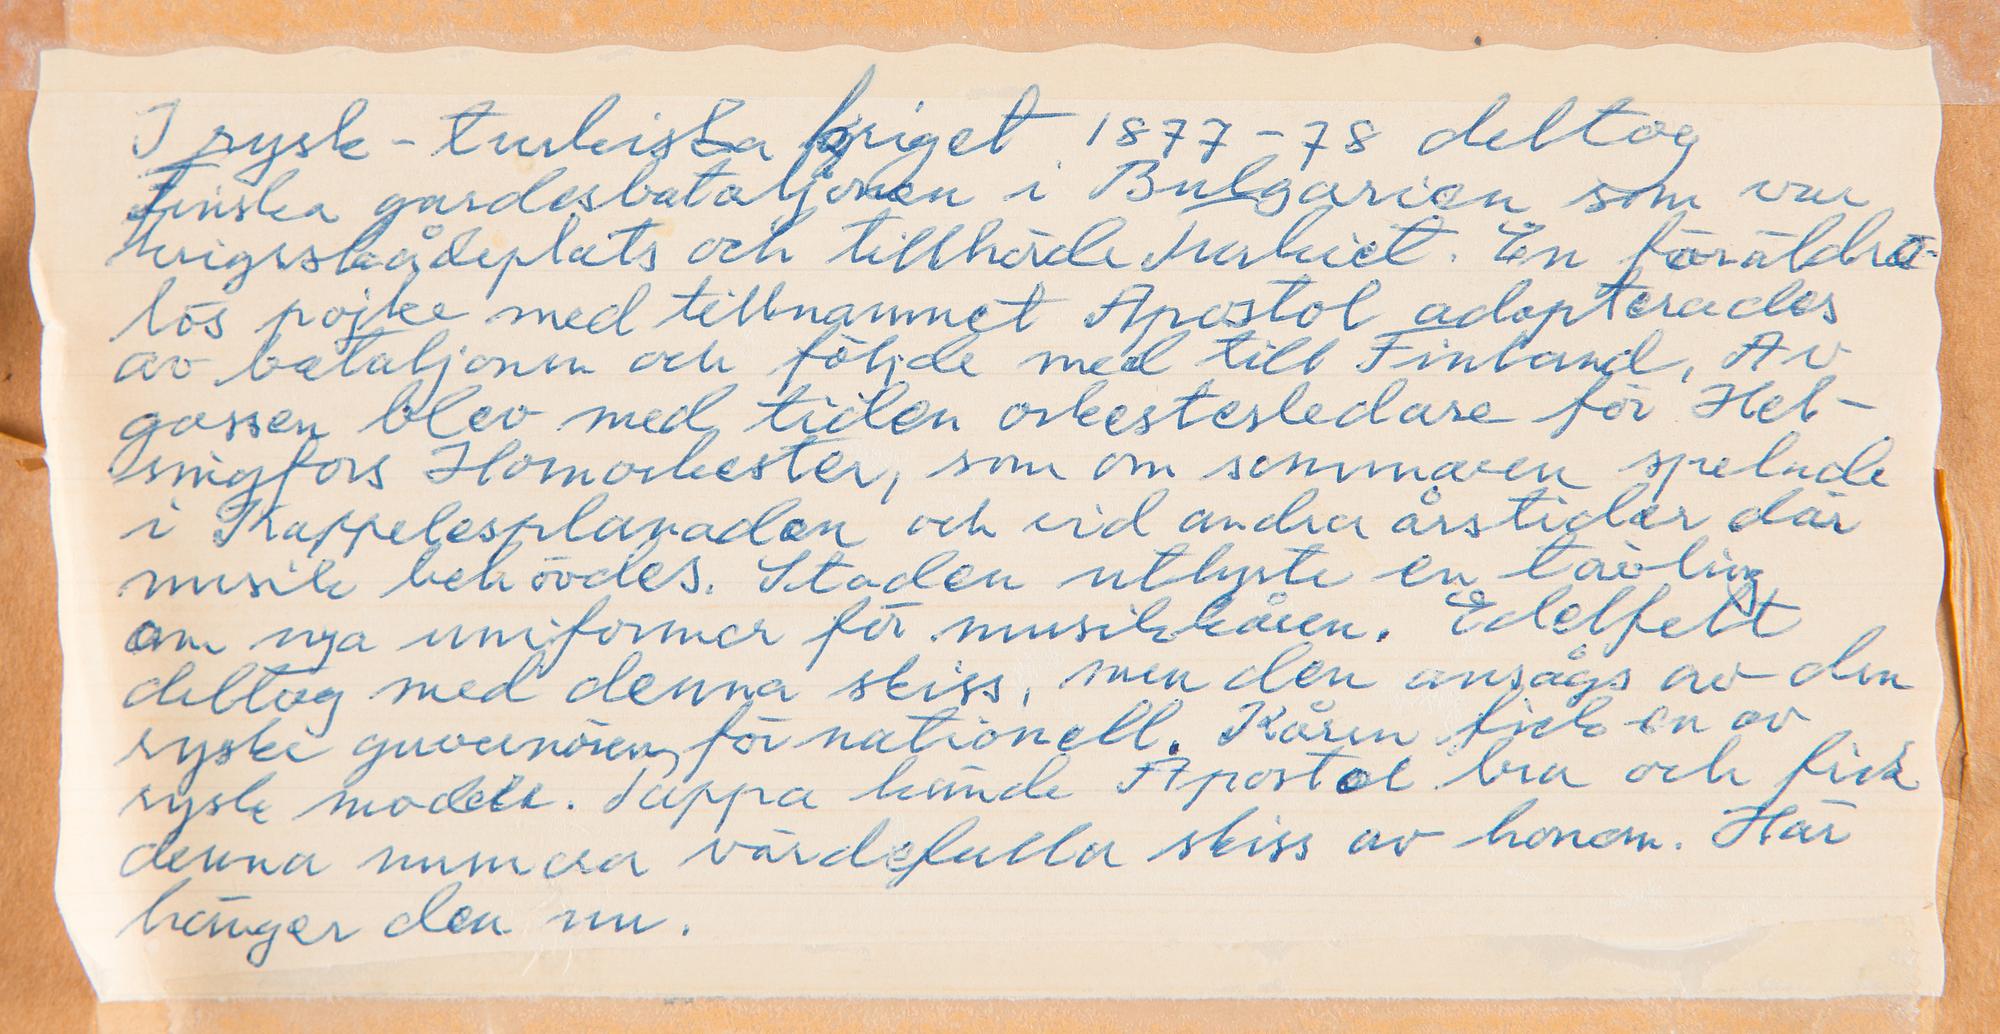 I rysk-turkiska kriget 1877-78 deltog
Finska gardesbataljonen i Bulgarien som var
krigsskådeplats och tillhörde Turkiet. En föräldra-
lös pojke med tillnamnet Apostol adopterades
av bataljonen och följde med till Finland, Av
gossen blev med tiden orkesterledare för Hel-
singfors Hornorkester, som om sommaren spelade
i Kappelesplanaden och vid andra årstider där
musik behövdes. Staden utlyste en tävling
om nya uniformer för musikkåren. Edelfelt
deltog med denna skiss, men den ansågs av den
ryske guvernören för nationell. Kåren fick en av
rysk modell. Pappa kände Apostol bra och fick
denna numera värdefulla skiss av honom. Här
hänger den nu.